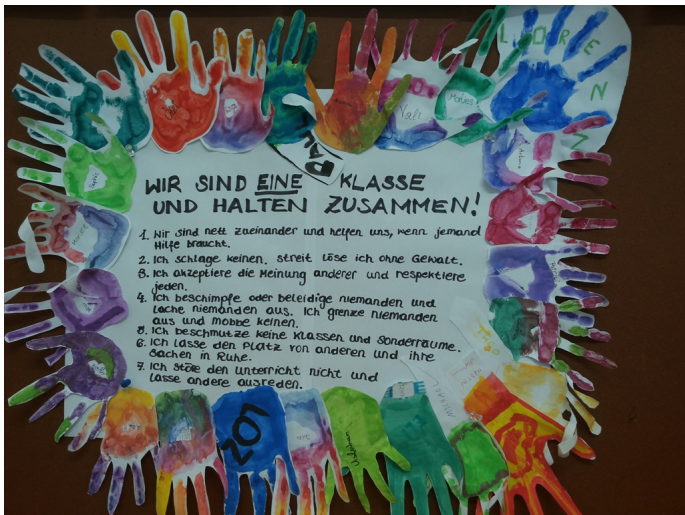 LOREN
Vali
Mohies
WIR SIND EINE KLASSE
UND HALTEN ZUSAMMEN!
1. Wir sind nett zueinander und helfen uns, wenn jemand
Hilfe braucht.
2. Ich schlage keinen. streit löse ich ohne Gewalt.
3. Ich akzeptiere die Meinung anderer und respektiere
jeden.
4. Ich beschimpfe oder beleidige niemanden und
lache niemanden aus. Ich grenze niemanden
aus und mobbe keinen.
5. Ich beschmutze keine Klassen und Sonderräume.
6. Ich lasse den Platz von anderen und ihre
Sachen in Ruhe.
7. Ich störe den Unterricht nicht und
lasse andere ausreden.